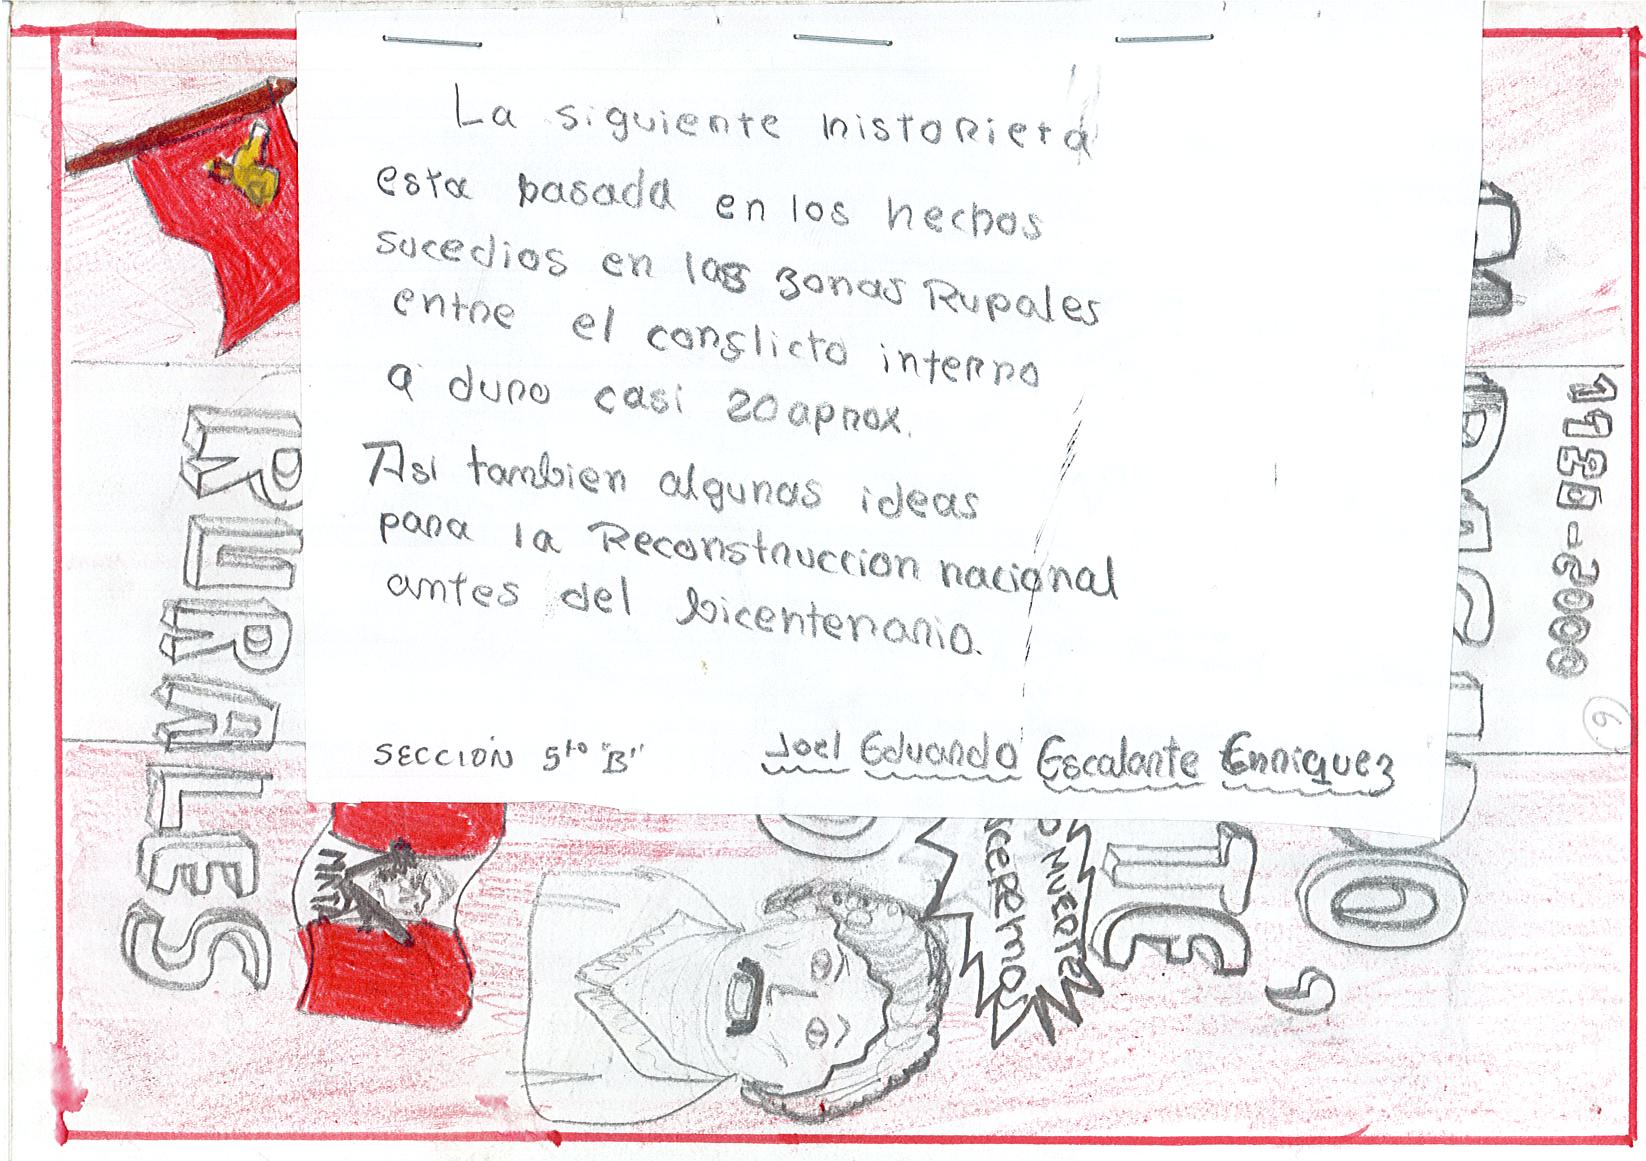 La siguiente historieta
esta basada en los hechos
sucedios en las zonas Rurales
entre el conflicto interno
q duro casi 20 aprox.
Asi tambien algunas ideas
para la Reconstruccion nacional
antes del bicentenario.
SECCIÓN 5to "B" Joel Eduardo Escalante Enriquez
1980-2000
6
RURALES
MRTA
O MUERTE
CEREMOS